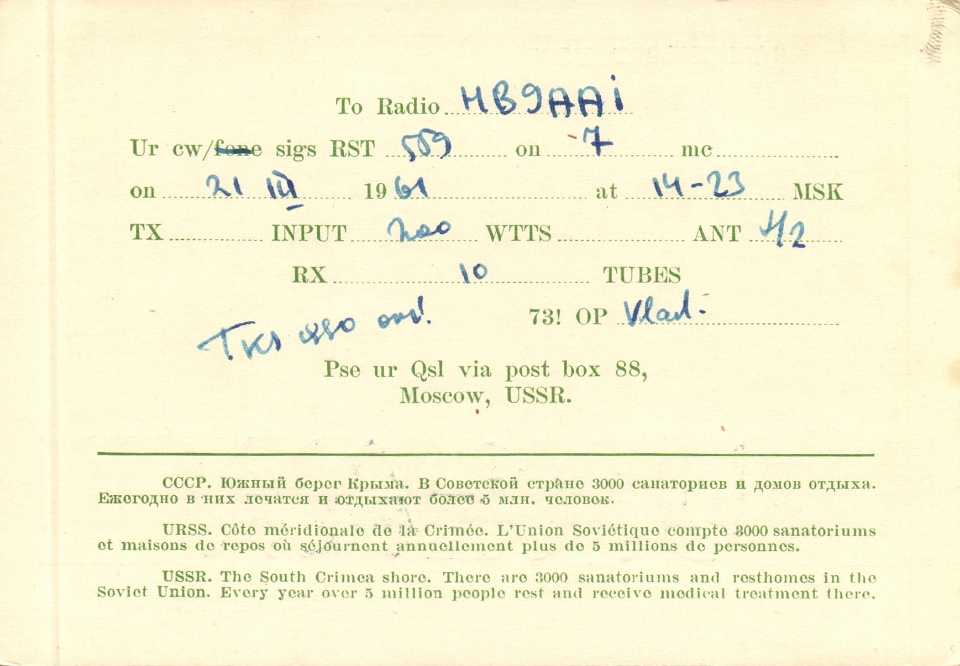 To Radio HB9AAi
Ur cw/fone sigs RST 559 on 7 mc
on 21 III 1961 at 14-23 MSK
TX INPUT 200 WTTS ANT
RX 10 TUBES
73! OP Vlad.
TKS QSO
Pse ur Qsl via post box 88,
Moscow, USSR.
СССР. Южный берег Крыма. В Советской стране 3000 санаториев и домов отдыха.
Ежегодно в них лечатся и отдыхают более 5 млн. человек.
URSS. Côte méridionale de la Crimée. L'Union Soviétique compte 3000 sanatoriums
et maisons de repos où séjournent annuellement plus de 5 millions de personnes.
USSR. The South Crimea shore. There are 3000 sanatoriums and resthomes in the
Soviet Union. Every year over 5 million people rest and receive medical treatment there.